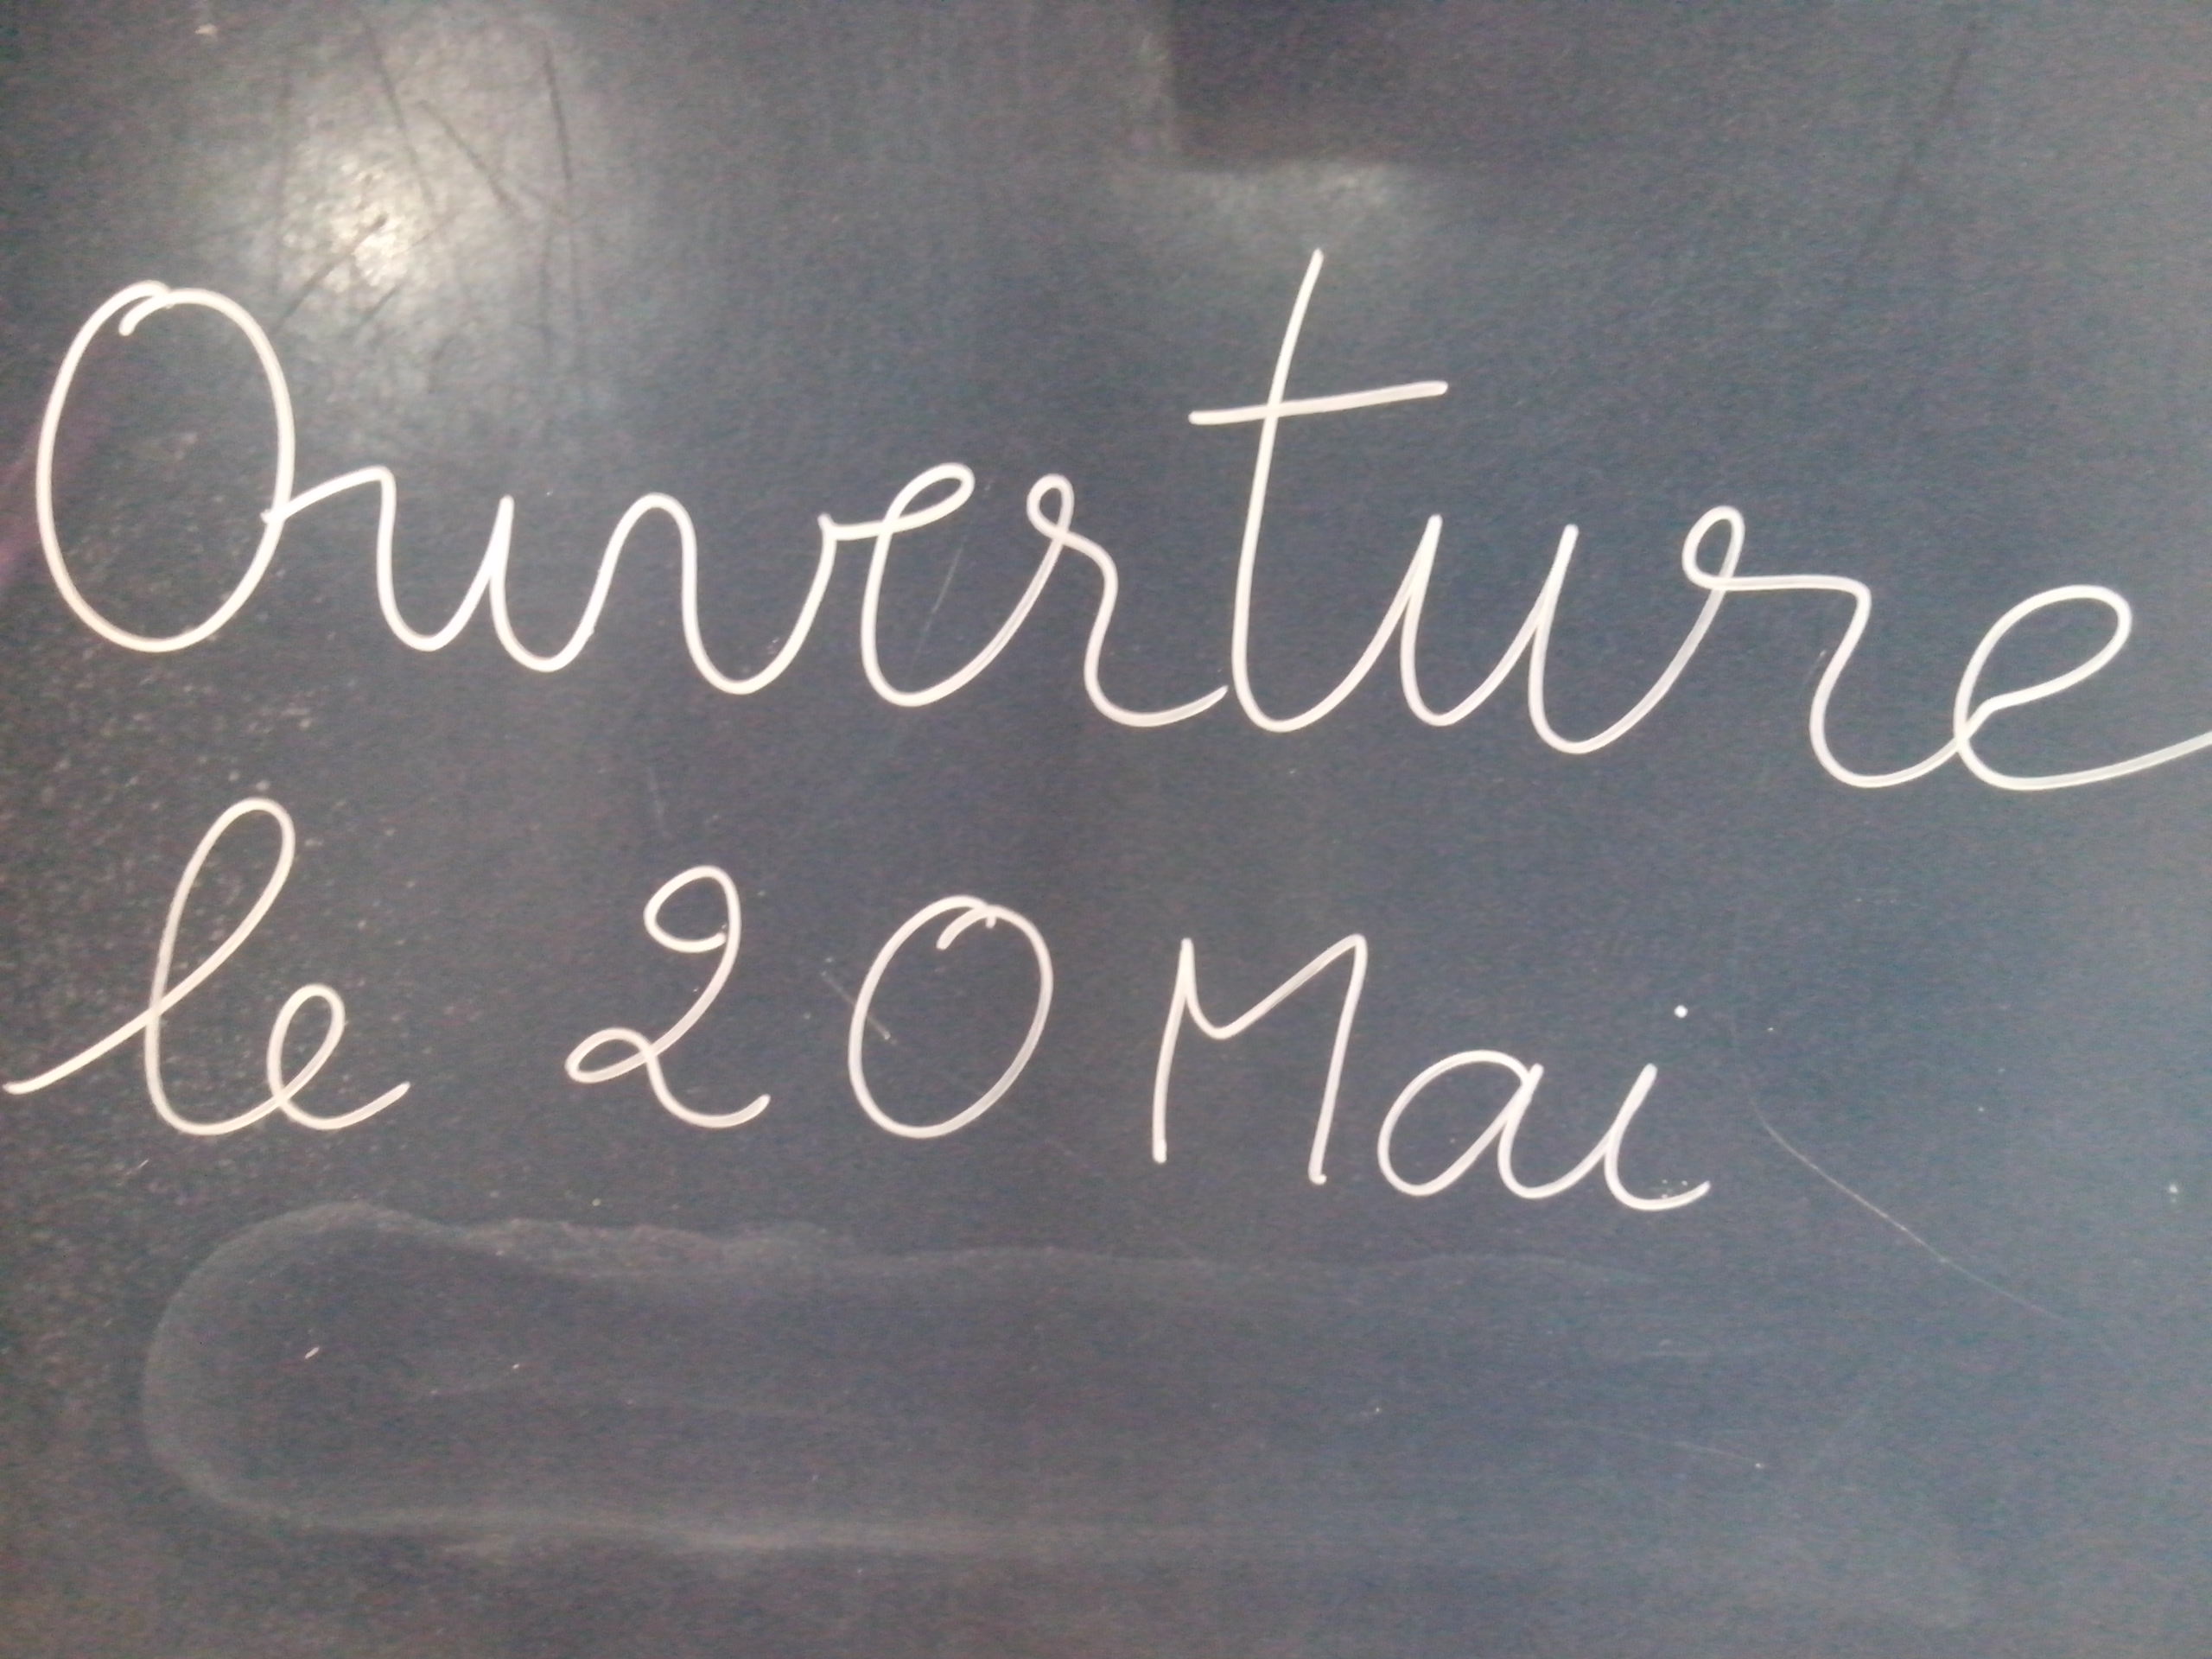 Ouverture
le 20 Mai